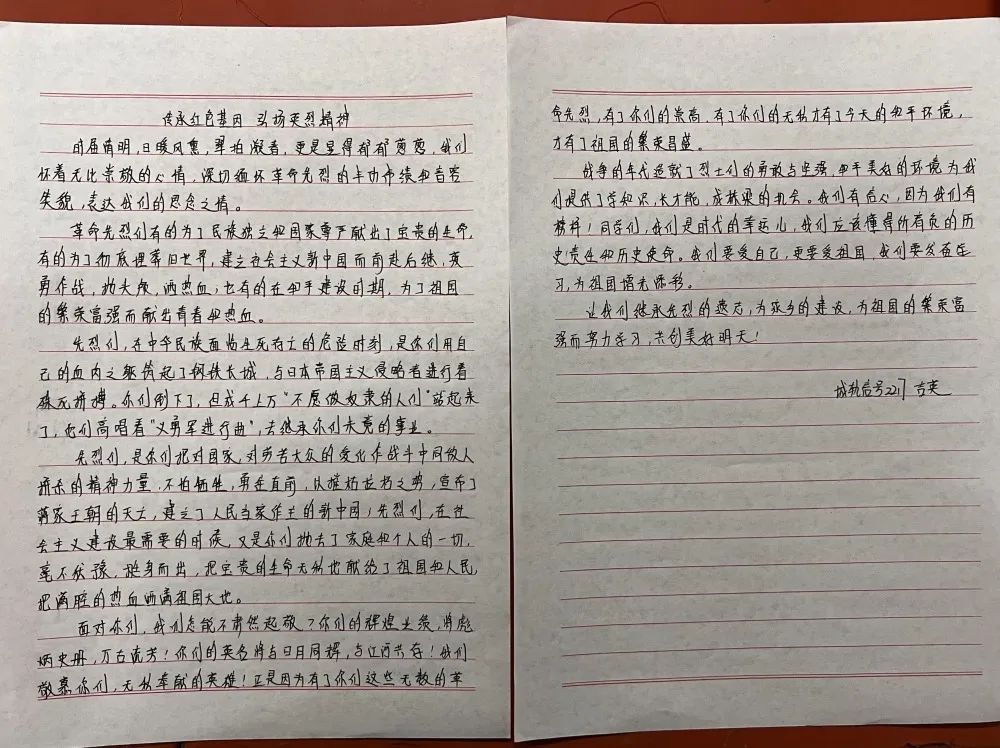 传承红色基因 弘扬英烈精神
时届清明,日暖风熏,翠柏凝春,更是显得郁郁葱葱。我们
怀着无比崇敬的心情,深切缅怀革命先烈的丰功伟绩和音容
笑貌,表达我们的思念之情。
革命先烈们有的为了民族独立和国家尊严献出了宝贵的生命,
有的为了彻底埋葬旧世界,建立社会主义新中国而前赴后继,英
勇作战,抛头颅,洒热血;也有的在和平建设时期,为了祖国
的繁荣富强而献出青春和热血。
先烈们,在中华民族面临生死存亡的危险时刻,是你们用自
己的血肉之躯筑起了钢铁长城,与日本帝国主义侵略者进行着
殊死拼搏。你们倒下了,但成千上万“不愿做奴隶的人们”站起来
了,他们高唱着“义勇军进行曲”,去继承你们未竟的事业。
先烈们,是你们把对国家,对劳苦大众的爱化作战斗中同敌人
拼杀的精神力量,不怕牺牲,勇往直前,以摧枯拉朽之势,宣布了
蒋家王朝的灭亡,建立了人民当家作主的新中国;先烈们,在社
会主义建设最需要的时候,又是你们抛去了家庭和个人的一切,
毫不犹豫,挺身而出,把宝贵的生命无私地献给了祖国和人民,
把满腔的热血洒满祖国大地。
面对你们,我们怎能不肃然起敬?你们的辉煌业绩,将彪
炳史册,万古流芳!你们的英名将与日月同辉,与江河共存!我们
敬慕你们,无私奉献的英雄!正是因为有了你们这些无数的革
命先烈,有了你们的崇高,有了你们的无私才有了今天的和平环境,
才有了祖国的繁荣昌盛。
战争的年代造就了烈士们的勇敢与坚强,和平美好的环境为我
们提供了学知识,长才能,成栋梁的机会。我们有信心,因为我们有
榜样!同学们,我们是时代的幸运儿,我们应该懂得所肩负的历
史责任和历史使命。我们要爱自己,更要爱祖国,我们要发奋学
习,为祖国增光添彩。
让我们继承先烈的遗志,为家乡的建设,为祖国的繁荣富
强而努力学习,共创美好明天!
城轨信号2217 吉英